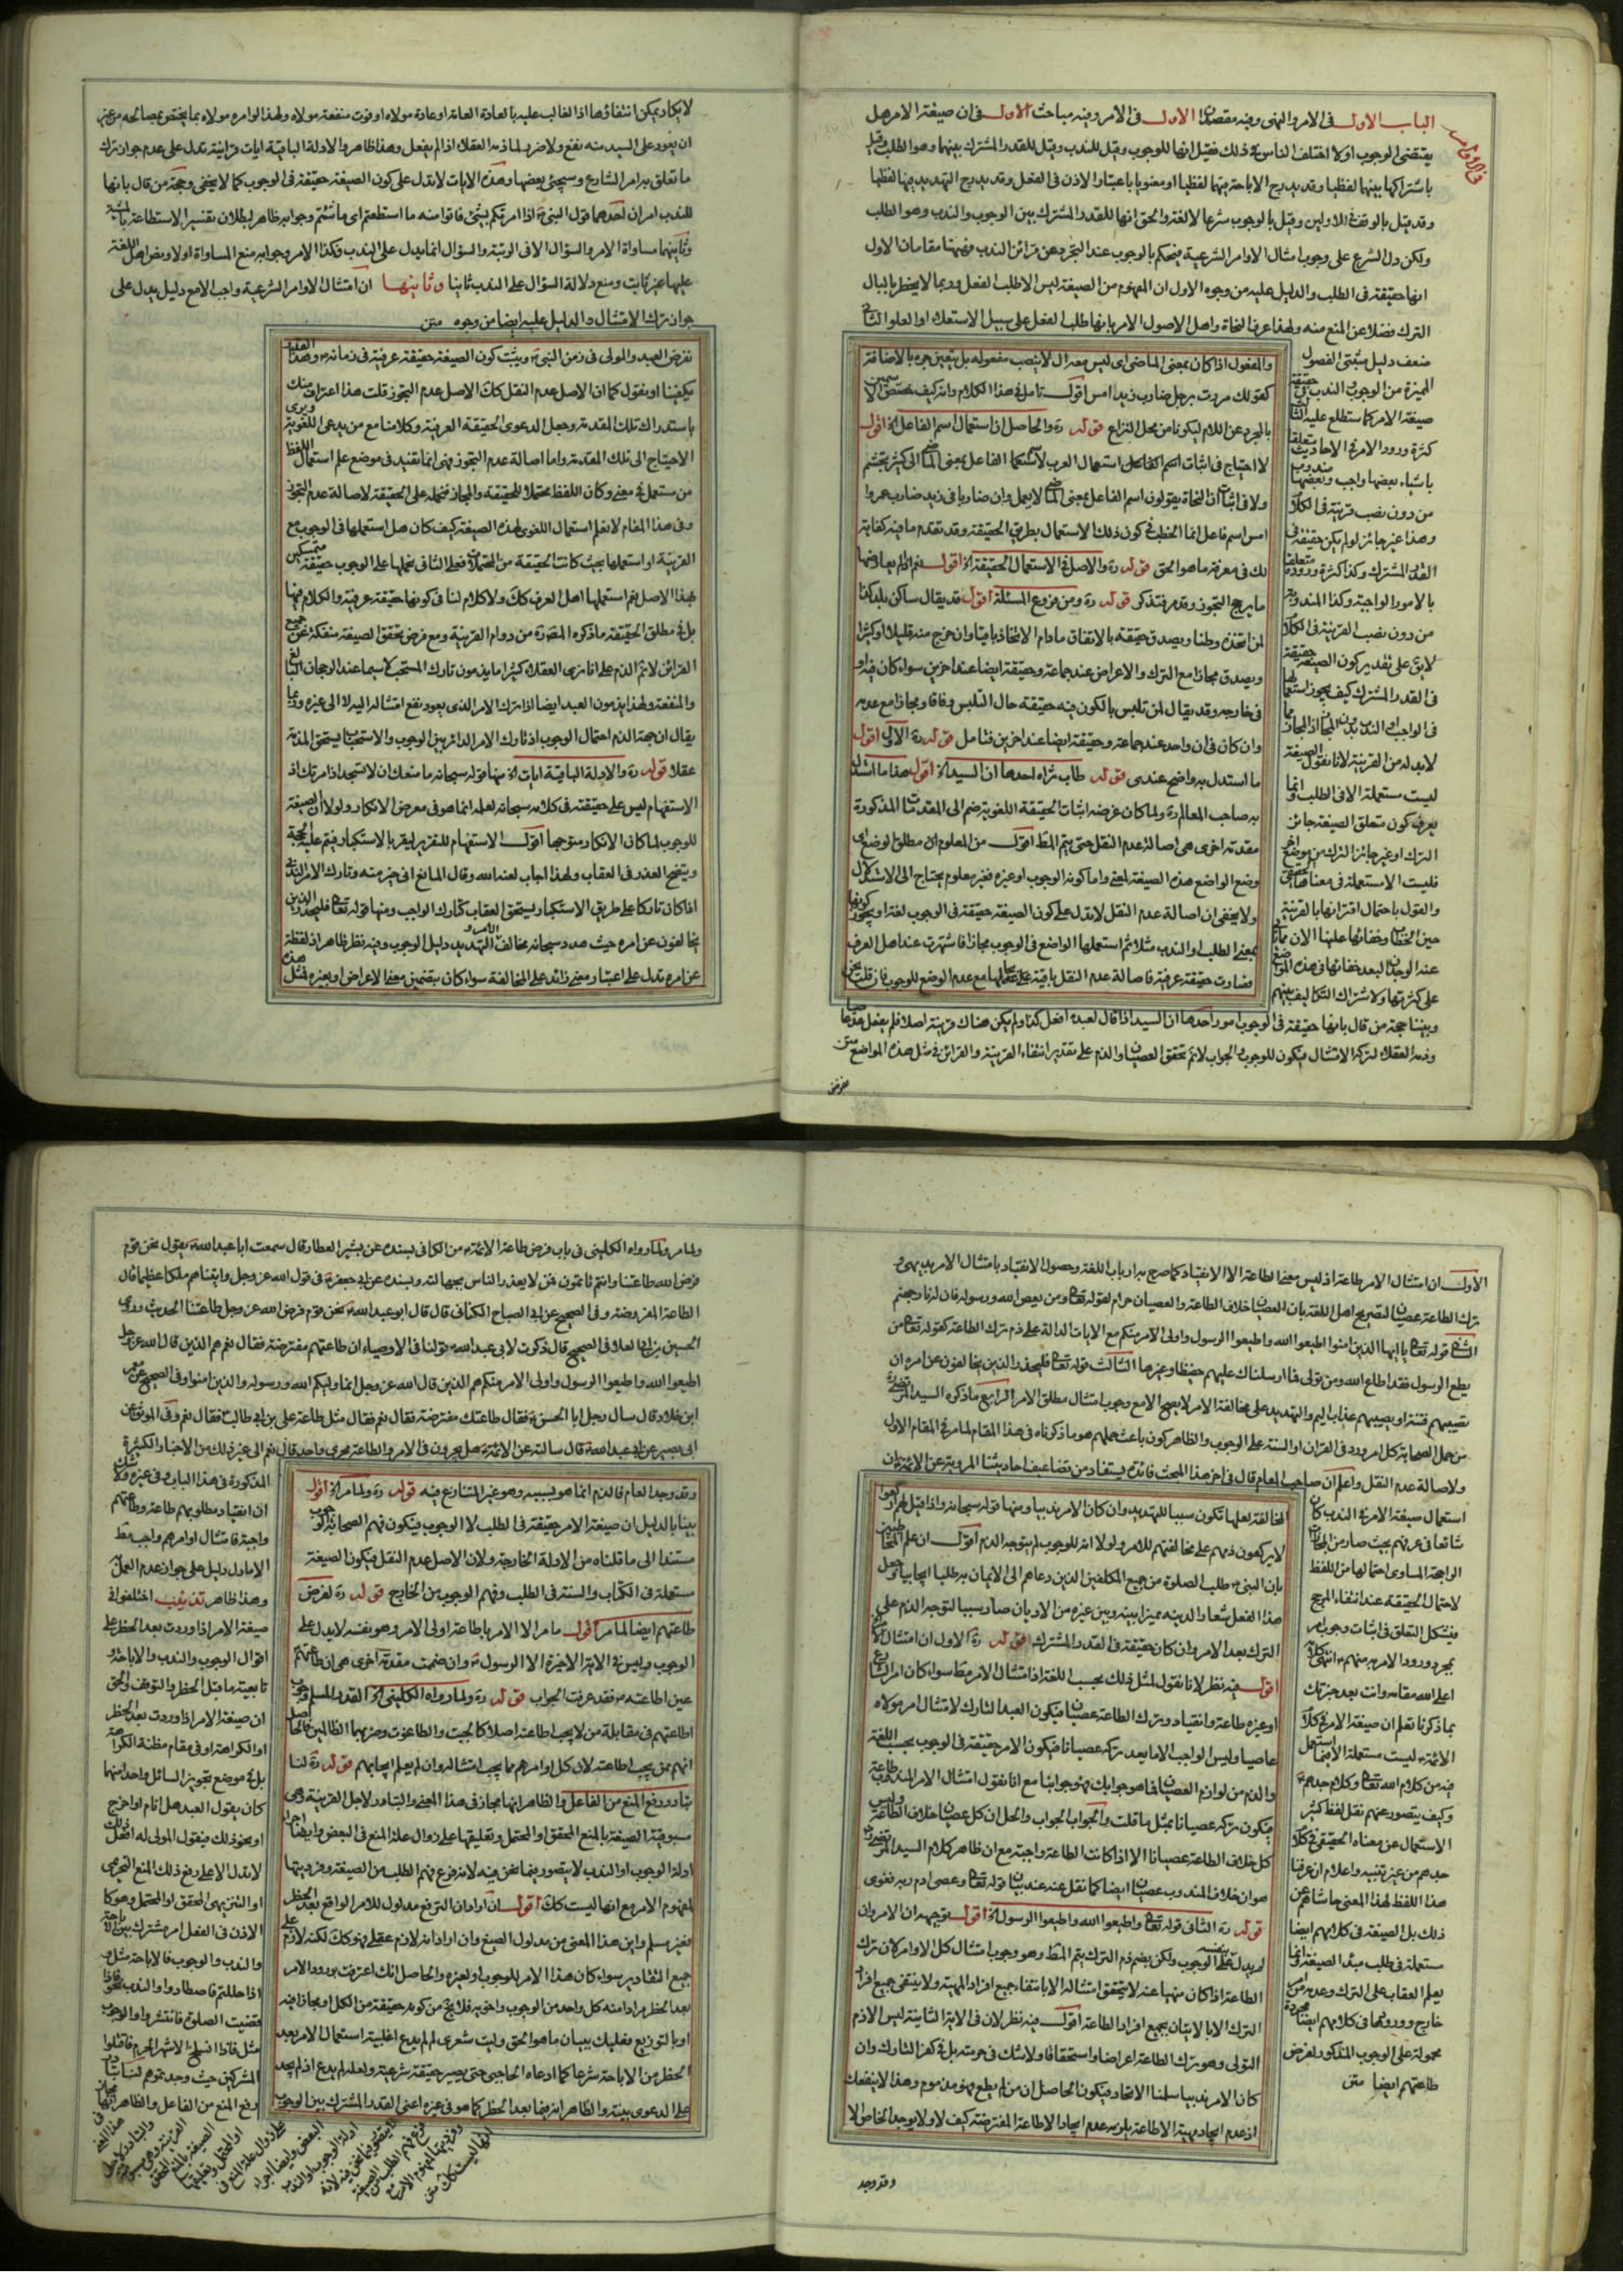 الباب الاول فى الامر والنهى وفيه مقصدان الاول فى الامر وفيه مباحث الاول فى ان صيغة الامر هل
يقتضى الوجوب اولا اختلف الناس فى ذلك فقيل انها للوجوب وقيل للندب وقيل للقدر المشترك بينهما وهو الطلب وقيل
باشتراكها بينهما لفظيا وقد يدرج الاباحة بينهما لفظيا او معنويا باعتبار الاذن فى الفعل وقد يدرج التهديد بينها لفظيا
وقد قيل بالوقف فى الاولين وقيل بالوجوب شرعا لا لغة والحق انها للقدر المشترك بين الوجوب والندب وهو الطلب
ولكن دل الشرع على وجوب امتثال الاوامر الشرعية فيحكم بالوجوب عند التجرد عن قرائن الندب فهيهنا مقامان الاول
انها حقيقة فى الطلب والدليل عليه من وجوه الاول ان المفهوم من الصيغة ليس الا طلب الفعل وربما لا يخطر بالبال
الترك فضلا عن المنع منه ولهذا عرف النحاة واهل الاصول الامر بانها طلب الفعل على سبيل الاستعلاء او العلو الثانى
ضعف دليل مثبتى الفصول
المميزة من الوجوب والندب فى حقيقة
صيغة الامر كما ستطلع عليه الثالث
كثرة ورود الامر فى الاحاديث متعلقا
باشياء بعضها واجب وبعضها مندوب
من دون نصب قرينة فى الكلام
وهذا غير جائز لو لم يكن حقيقة فى
القدر المشترك وكذا كثرة وروده متعلقا
بالامور الواجبة وكذا المندوبة
من دون نصب القرينة فى الكلام
لا يق على تقدير كون الصيغة حقيقة
فى القدر المشترك كيف يجوز استعمالها
فى الواجب او الندب بدون المجاز
لا بد له من القرينة لانا نقول الصيغة
ليست مستعملة الا فى الطلب وانما
يعرف كون متعلق الصيغة جائز
الترك او غير جائز الترك من موضع اخر
فليست الا مستعملة فى معناها الحقيقى
والقول باحتمال اقترانها بالقرينة
حين الخطاب وخفائها علينا الان مما
عنه الوجدان لبعد خفائها فى هذه المواضع
على كثرتها ولاشتراك التكاليف بينهم
وبيننا حجة من قال بانها حقيقة فى الوجوب امور احدها ان السيد اذا قال لعبده افعل كذا ولم يكن هناك قرينة اصلا فلم يفعل عد عاصيا
وذمه العقلاء لتركه الامتثال فيكون للوجوب والجواب لا نم تحقق العصيان والذم على تقدير انتفاء القرينة والقرائن فى مثل هذه المواضع متن
والمفعول اذا كان بمعنى الماضى اى ليس معه ال لا ينصب مفعوله بل يتعين جره بالاضافة
كقولك مررت برجل ضارب زيد امس اقول تامل فى هذا الكلام وانه كيف خصص الاسمين
بالمجرد عن اللام ليكونا من محل النزاع قوله ره والحاصل ان استعمال اسم الفاعل الخ اقول
لا احتياج فى اثبات اسم الفاعل استعمال العرب لاسم الفاعل بمعنى الماضى الى كثير تجشم
ولا فى اثبات ان النحاة يقولون اسم الفاعل بمعنى الماضى لا يعمل وان ضاربا فى زيد ضارب عمروا
امس اسم فاعل انما الخطب فى كون ذلك الاستعمال بطريق الحقيقة وقد تقدم ما فيه كفاية
لك فى معرفة ما هو الحق قوله ره والاصل فى الاستعمال الحقيقة الخ اقول نعم اذا لم يعارضها
ما يرجح التجوز وقد مر فتذكر قوله ره ومن فروع المسئلة اقول قد يقال ساكن بلد كذا
لمن اتخذه وطنا ويصدق حقيقة بالاتفاق مادام الاتخاذ باقيا وان خرج منه قليلا او كثيرا
ويصدق مجازا مع الترك والاعراض عند جماعة وحقيقة ايضا عند اخرين سواء كان فيه او
فى خارجه وقد يقال لمن تلبس بالكون فيه حقيقة حال التلبس وفاقا ومجازا مع عدمه
وان كان فى ان واحد عند جماعة وحقيقة ايضا عند اخرين فتامل قوله ره الاول اقول
ما استدل به واضح عندى قوله طاب ثراه احدها ان السيد الخ اقول هذا ما استدل
به صاحب المعالم ره ولما كان غرضه اثبات الحقيقة اللغوية ضم الى المقدمات المذكورة
مقدمة اخرى هى اصالة عدم النقل حتى يتم المط اقول من المعلوم ان مطلق الوضع اى
وضع الواضع هذه الصيغة لمعنى واما كونه الوجوب او غيره فغير معلوم يحتاج الى الاستدلال
ولا يخفى ان اصالة عدم النقل لا تدل على كون الصيغة حقيقة فى الوجوب لغة او يجوز كونها
بمعنى الطلب او الندب مثلا ثم استعملها الواضع فى الوجوب مجازا فاشتهرت عند اهل العرف
فصارت حقيقة عرفية فاصالة عدم النقل باقية على حالها مع عدم الوضع للوجوب فان قلت نحن
نفرض
لا يكاد يمكن انتفاؤها اذا الغالب عليه بالعادة العامة او عادة مولاه او فوت منفعة مولاه ولهذا لو امره مولاه بما يختص بمصالحه من غير
ان يعود على السيد منه نفع ولا ضر لما ذمه العقلاء اذا لم يفعل وهذا ظاهر والادلة الباقية ايات قرانية تدل على عدم جواز ترك
ما تعلق به امر الشارع وسيجئ بعضها وهذه الايات لا تدل على كون الصيغة حقيقة فى الوجوب كما لا يخفى وحجة من قال بانها
للندب امران احدهما قول النبى اذا امرتكم بشئ فاتوا منه ما استطعتم اى ما شئتم وجوابه ظاهر لبطلان تفسير الاستطاعة بالمشية
وثانيهما مساواة الامر والسؤال الا فى الرتبة والسؤال انما يدل على الندب فكذا الامر وجوابه منع المساواة اولا ونص اهل اللغة
عليها غير ثابت ومنع دلالة السؤال على الندب ثانيا وثانيهما ان امتثال الاوامر الشرعية واجب الا مع دليل يدل على
جواز ترك الامتثال والدليل عليه ايضا من وجوه متن
نفرض العبد والمولى فى زمن النبى ويثبت كون الصيغة حقيقة عرفية فى زمانه وهذا القدر
يكفينا او نقول كما ان الاصل عدم النقل كك الاصل عدم التجوز قلت هذا اعتراف منك
باستدراك تلك المقدمة وجعل الدعوى الحقيقة العرفية وكلامنا مع من يدعى اللغوية ويرى
الاحتياج الى تلك المقدمة واما اصالة عدم التجوز فهى انما تفيد فى موضع علم استعمال اللفظ
من مستعمل فى معنى وكان اللفظ محتملا للحقيقة والمجاز فنحمله على الحقيقة لاصالة عدم التجوز
وفى هذا المقام لا نعلم استعمال اللغوى لهذه الصيغة كيف كان هل استعملها فى الوجوب مع
القرينة او استعملها بحيث كانت الحقيقة من المحتملات فعلى الثانى نحملها على الوجوب حقيقة متمسكين
بهذا الاصل نعم استعملها اهل العرف كك ولا كلام لنا فى كونها حقيقة عرفية والكلام فيها
بل فى مطلق الحقيقة ما ذكره المص ره من دوام القرينة ومع فرض تحقق الصيغة منفكة عن جميع
القرائن لا نم الذم على انا نرى العقلاء كثيرا ما يذمون تارك المستحب لا سيما عند الرجحان البالغ
والمنفعة ولهذا يذمون العبد ايضا اذا ترك الامر الذى يعود نفع امتثاله اليه لا الى غيره وربما
يقال ان جهة الذم احتمال الوجوب اذ تارك الامر الدائر بين الوجوب والاستحباب يستحق المذمة
عقلا قوله ره والادلة الباقية ايات الخ منها قوله سبحانه ما منعك ان لا تسجد اذ امرتك اذ
الاستفهام ليس على حقيقته فى كلامه سبحانه لعلمه انما هو فى معرض الانكار ولولا ان صيغة
للوجوب لما كان الانكار متوجها اقول الاستفهام للتقرير ليقر بالاستكبار ويتم عليه الحجة
ويتضح العذر فى العقاب ولهذا اجاب لعنه الله وقال المانع انى خير منه وتارك الامر الندبى
اذا كان تاركا على طريق الاستكبار يستحق العقاب كتارك الواجب ومنها قوله تعالى فليحذر الذين
يخالفون عن امره حيث هدد سبحانه مخالف الامر والتهديد دليل الوجوب وفيه نظر ظاهر اذ لفظة
عن امره تدل على اعتبار معنى زائد على المخالفة سواء كان بتضمين معنى الاعراض او بغيره فمثل هذه
الاول ان امتثال الامر طاعة اذ ليس معنى الطاعة الا الانقياد كما صرح به ارباب اللغة وحصول الانقياد بامتثال الامر بديهى و
ترك الطاعة عصيان لتصريح اهل اللغة بان العصيان خلاف الطاعة والعصيان حرام لقوله تعالى ومن يعص الله ورسوله فان له نار جهنم
الثانى قوله تعالى يا ايها الذين امنوا اطيعوا الله واطيعوا الرسول واولى الامر منكم مع الايات الدالة على ذم ترك الطاعة كقوله تعالى من
يطع الرسول فقد اطاع الله ومن تولى فما ارسلناك عليهم حفيظا وغيرها الثالث قوله تعالى فليحذر الذين يخالفون عن امره ان
تصيبهم فتنة او يصيبهم عذاب اليم والتهديد على مخالفة الامر لا يصح الا مع وجوب امتثال مطلق الامر الرابع ما ذكره السيد المرتضى ره
من حمل الصحابة كل امر ورد فى القران او السنة على الوجوب والظاهر كون باعث حملهم هو ما ذكرناه فى هذا المقام لما مر فى المقام الاول
ولاصالة عدم النقل واعلم ان صاحب المعالم قال فى اخر هذا المبحث فائدة يستفاد من تضاعيف احاديثنا المروية عن الائمة ان
استعمال صيغة الامر فى الندب كان
شائعا فى عرفهم بحيث صار من المجازات
الراجحة المساوى احتمالها من اللفظ
لاحتمال الحقيقة عند انتفاء المرجح
فيشكل التعلق فى اثبات وجوب امر
بمجرد ورود الامر به منهم انتهى كلامه
اعلى الله مقامه وانت بعد خبرتك
بما ذكرنا تعلم ان صيغة الامر فى كلام
الائمة ليست مستعملة الا فيما استعمل
فيه من كلام الله تعالى وكلام جدهم
وكيف يتصور عنهم نقل لفظ كثير
الاستعمال عن معناه الحقيقى فى كلام
جدهم من غير تنبيه واعلام ان عرفنا
هذا اللفظ لهذا المعنى حاشاهم عن
ذلك بل الصيغة فى كلامهم ايضا
مستعملة فى طلب مبدء الصيغة وانما
يعلم العقاب على الترك وعدمه من
خارج وورودها فى كلامهم ايضا مجردة
محمولة على الوجوب المذكور لفرض
طاعتهم ايضا متن
المخالفة لعلها تكون سببا للتهديد وان كان الامر ندبيا ومنها قوله سبحانه واذا قيل لهم اركعوا
لا يركعون ذمهم على مخالفتهم للامر ولولا انه للوجوب لم يتوجه الذم اقول ان علم المخاطبين
بان النبى طلب الصلوة من جميع المكلفين الذين دعاهم الى الايمان به طلبا ايجابيا وجعل
هذا الفعل شعار الدينه مميزا بينه وبين غيره من الاديان صار سببا لتوجه الذم على
الترك بعد الامر وان كان حقيقة فى القدر المشترك قوله ره الاول ان امتثال الامر
اقول فيه نظر لانا نقول مثل ذلك بحسب اللغة اذ امتثال الامر مط سواء كان امر الشارع
او غيره طاعة وانقياد وترك الطاعة عصيان فيكون العبد التارك لامتثال امر مولاه
عاصيا وليس الواجب الا ما يعد تركه عصيانا فيكون الامر حقيقة فى الوجوب بحسب اللغة
والذم من لوازم العصيان فما هو جوابك فهو جوابنا مع انا نقول امتثال الامر المندوب طاعة
فيكون تركه عصيانا بمثل ما قلت والجواب الجواب والحل ان كل عصيان خلاف الطاعة وليس
كل خلاف الطاعة عصيانا الا اذا كانت الطاعة واجبة مع ان ظاهر كلام السيد المرتضى ره
هو ان خلاف المندوب عصيان ايضا كما نقل عنه عند بيان قوله تعالى وعصى ادم ربه فغوى
قوله ره الثانى قوله تعالى واطيعوا الله واطيعوا الرسول الخ اقول توجيهه ان الامر وان
لم يدل بنفسه على الوجوب ولكن بضم ذم الترك يتم المط وهو وجوب امتثال كل الاوامر لان ترك
الطاعة اذا كان منهيا عنه لا يتحقق امتثاله الا بانتفاء جميع افراد المهية ولا ينتفى جميع افراد
الترك الا بالاتيان بجميع افراد الطاعة اقول فيه نظر لان فى الاية الثانية ليس الا ذم
التولى وهو ترك الطاعة اعراضا واستحقاقا ولا شك فى حرمته بل فى كفر التارك وان
كان الامر ندبيا سلمنا الاتحاد فيكون الحاصل ان من لم يطع فهو مذموم وهذا لا ينفعك
اذ عدم ايجاد مهية الاطاعة يلزمه عدم ايجاد الاطاعة المفترضة كيف لا ولا يوجد الخاص الا
وقد وجد
ولما مر ولما رواه الكلينى فى باب فرض طاعة الائمة من الكافى بسنده عن بشير العطار قال سمعت ابا عبد الله يقول نحن قوم
فرض الله طاعتنا وانتم تاتمون بمن لا يعذر الناس بجهالته وبسنده عن ابى جعفر فى قول الله عز وجل واتيناهم ملكا عظيما قال
الطاعة المفروضة وفى الصحيح عن ابى الصباح الكنانى قال قال ابو عبد الله نحن قوم فرض الله عز وجل طاعتنا الحديث وروى
الحسين بن ابى العلاء فى الصحيح قال ذكرت لابى عبد الله قولنا فى الاوصياء ان طاعتهم مفترضة فقال نعم هم الذين قال الله عز وجل
اطيعوا الله واطيعوا الرسول واولى الامر منكم هم الذين قال الله عز وجل انما وليكم الله ورسوله والذين امنوا وفى الصحيح عن معمر
ابن خلاد قال سال رجل ابا الحسن فقال طاعتك مفترضة فقال نعم فقال مثل طاعة على بن ابى طالب فقال نعم وفى الموثق عن
ابى بصير عن ابى عبد الله قال سالته عن الائمة هل يجرون فى الامر والطاعة مجرى واحد قال نعم الى غير ذلك من الاخبار الكثيرة
المذكورة فى هذا الباب وفى غيره ولا شك
ان انقياد مطلوبهم طاعة وطاعتهم
واجبة فامتثال اوامرهم واجب مط
الا ما دل دليل على جواز عدم العمل به
وهذا ظاهر تذنيب اختلفوا فى
صيغة الامر اذا وردت بعد الحظر على
اقوال الوجوب والندب والاباحة و
تابعيته ما قبل الحظر والتوقف والحق
ان صيغة الامر اذا وردت بعد الحظر
او الكراهة او فى مقام مظنة الكراهة
بل فى موضع تجويز السائل واحدا منها
كان يقول العبد هل انام او اخرج
او نحو ذلك فيقول المولى له افعل ذلك
لا تدل الا على رفع ذلك المنع التحريمى
او التنزيهى المحقق او المحتمل وهو كا
لاذن فى الفعل امر مشترك بين الاباحة
والندب والوجوب فالاباحة مثل و
اذا حللتم فاصطادوا والندب نحو فاذا
قضيت الصلوة فانتشروا والوجوب
مثل فاذا انسلخ الاشهر الحرم فاقتلوا
المشركين حيث وجدتموهم لنا تبادر
رفع المنع من الفاعل والظاهر انها مجاز
فى هذا المعنى
والتبادر لاجل
القرينة وهى مسبوقية
الصيغة بالمنع المحقق
او المحتمل وتعليقها
على زوال علة المنع فى
البعض وايضا اجراء
ادلة الوجوب او الندب
لا يتصور فيما نحن فيه لانه
فرع فهم الطلب من الصيغة
وفرديتها لمفهوم الامر مع
انها ليست كك متن
وقد وجد العام فالذم انما هو بسببه وهو غير المتنازع فيه قوله ره ولما مر الخ اقول
بينا بالدليل ان صيغة الامر حقيقة فى الطلب لا الوجوب فيكون فهم الصحابة الوجوب
مستندا الى ما قلناه من الادلة الخارجة ولان الاصل عدم النقل فيكون الصيغة
مستعملة فى الكتاب والسنة فى الطلب وفهم الوجوب من الخارج قوله ره لفرض
طاعتهم ايضا لما مر اقول ما مر الا الامر باطاعة اولى الامر وهو بنفسه لا يدل على
الوجوب وليس فى الاية الاخيرة الا الرسول وان ضمت مقدمة اخرى هى ان طاعتهم
عين اطاعته فقد عرفت الجواب قوله ره ولما رواه الكلينى الخ القدر المسلم وجوب
اطاعتهم فى مقابلة من لا يجب اطاعته اصلا كالجبت والطاغوت وحزبهما الظالمين فالحاصل
انهم ممن يجب اطاعته لا ان كل اوامرهم مما يجب امتثاله وان لم يعلم ايجابهم قوله ره لنا
تبادر رفع المنع من الفاعل والظاهر انها مجاز فى هذا المعنى والتبادر لاجل القرينة وهى
مسبوقية الصيغة بالمنع المحقق او المحتمل وتعليقها على زوال علة المنع فى البعض وايضا اجراء
ادلة الوجوب او الندب لا يتصور فيما نحن فيه لانه فرع فهم الطلب من الصيغة وفرديتها
لمفهوم الامر مع انها ليست كك اقول ان اراد ان الرفع مدلول للامر الواقع بعد الحظر
فغير مسلم واين هذا المعنى من مدلول الصيغ وان اراد انه لازم عقلى فهو كك لكنه لازم على
جميع التقادير سواء كان هذا الامر للوجوب او لغيره والحاصل انك اعترفت بورود الامر
بعد الحظر مرادا منه كل واحد من الوجوب واخويه فلا يخ من كونه حقيقة من الكل او مجازا فيه
او بالتوزيع فعليك ببيان ما هو الحق وليت شعرى لم لم يدع اغلبية استعمال الامر بعد
الحظر من الاباحة شرعا كما ادعاه الحاجبى حتى يصير حقيقة شرعية ولعله لم يدع اذ لم يجد
على الدعوى بينة والظاهر انه فيما بعد الحظر كما هو فى غيره اعنى القدر المشترك بين الوجوب